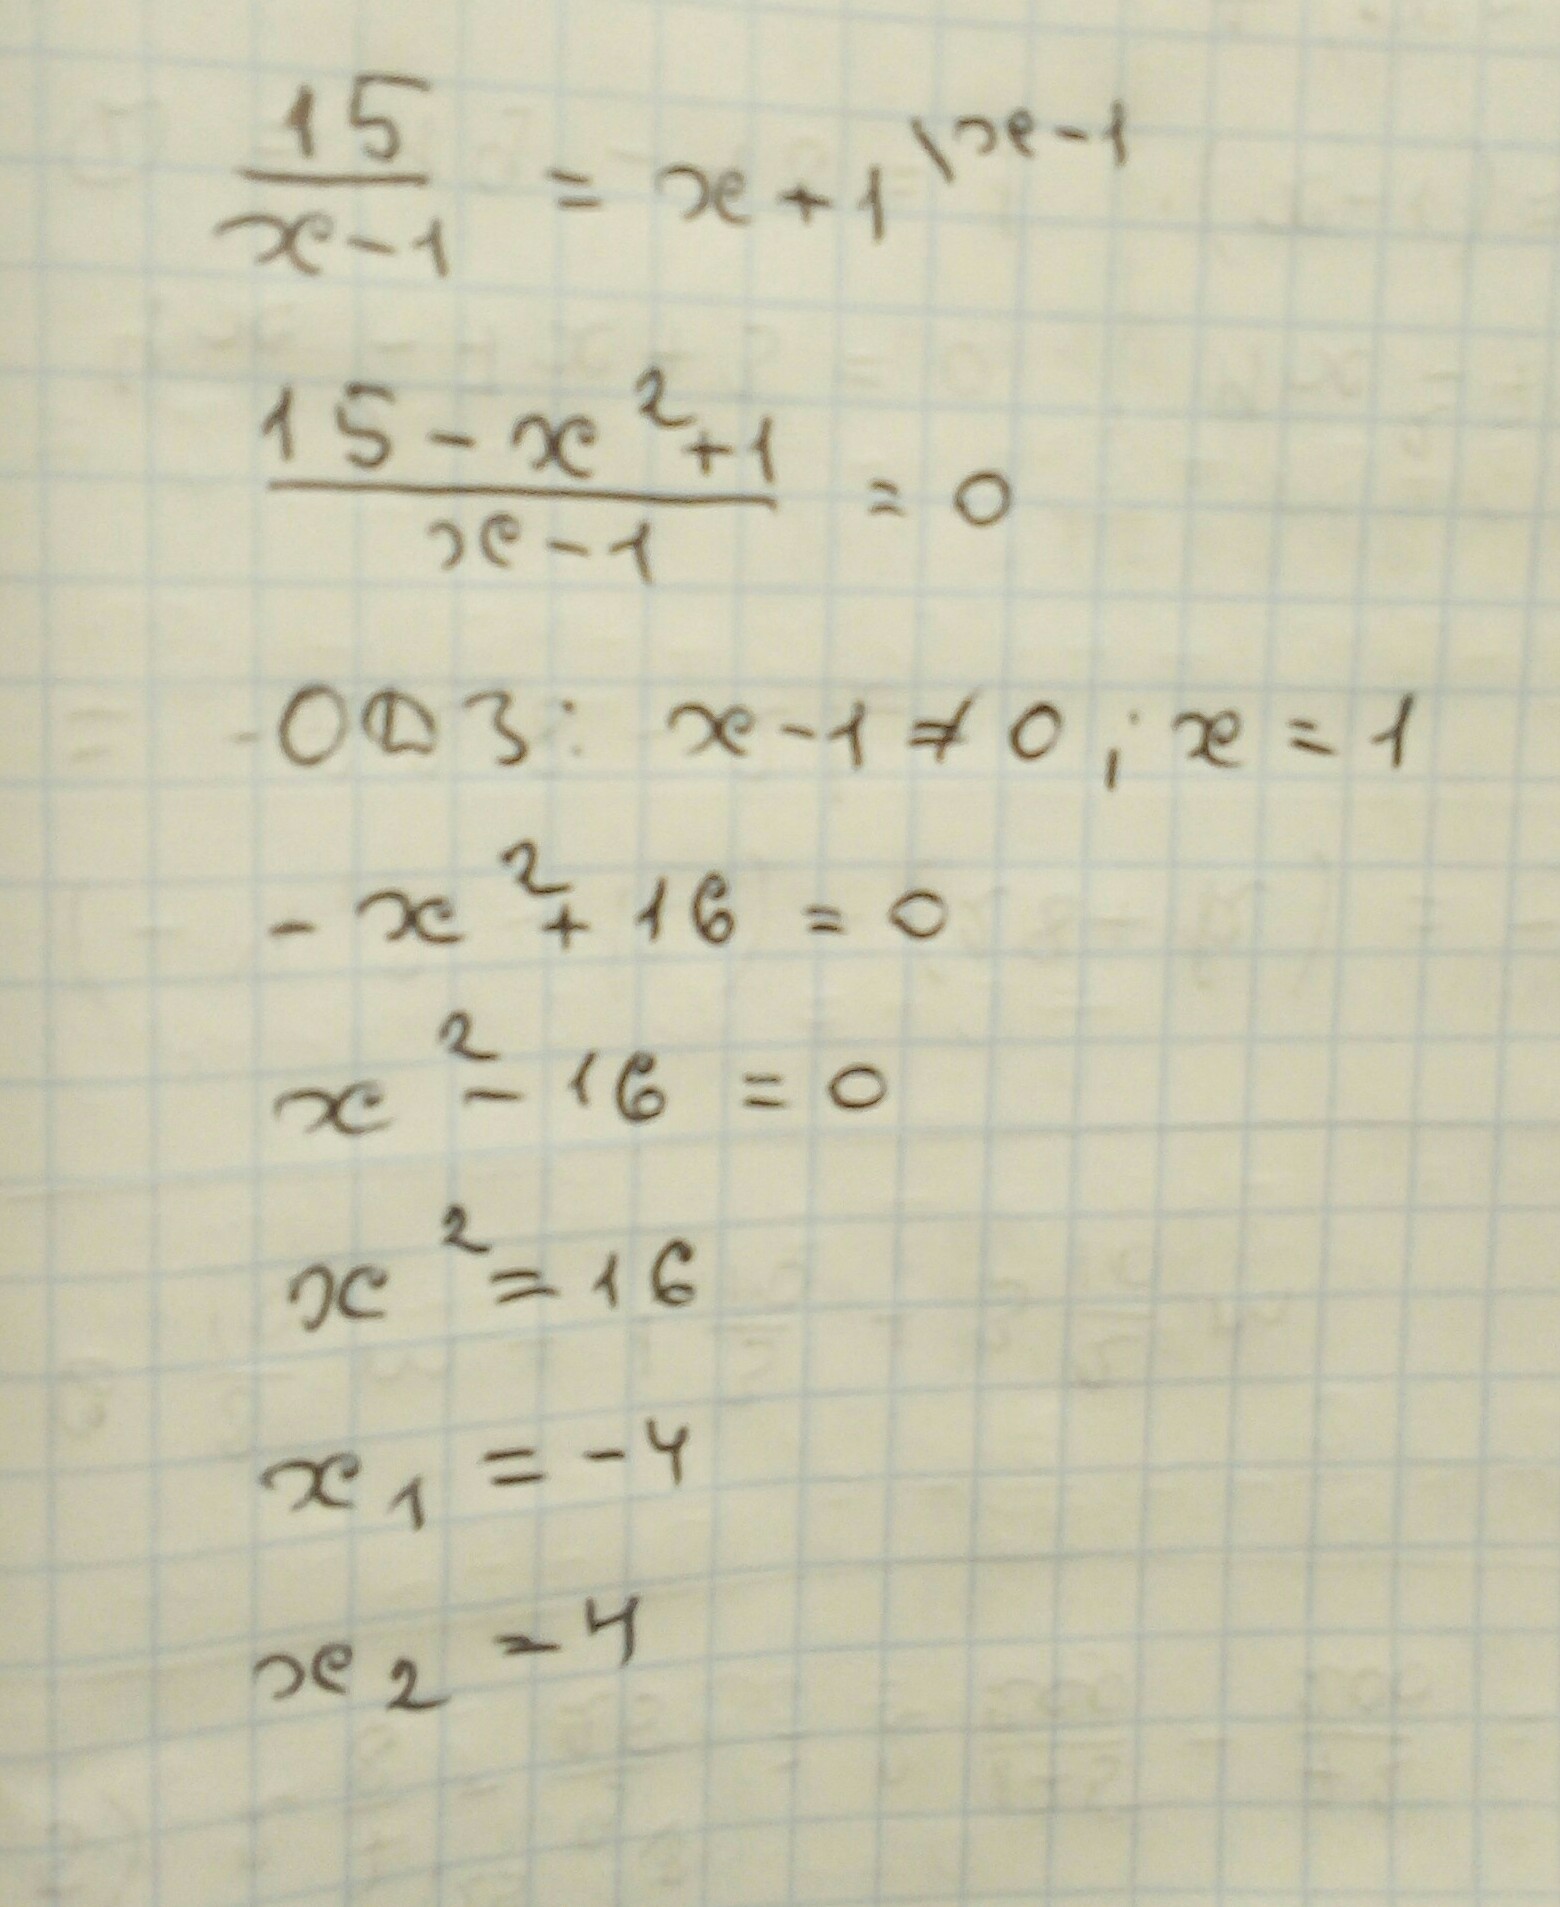 15/(x-1) = x+1 \x-1
(15-x²+1)/(x-1) = 0
ОДЗ: x-1≠0; x=1
-x²+16=0
x²-16=0
x²=16
x₁=-4
x₂=4